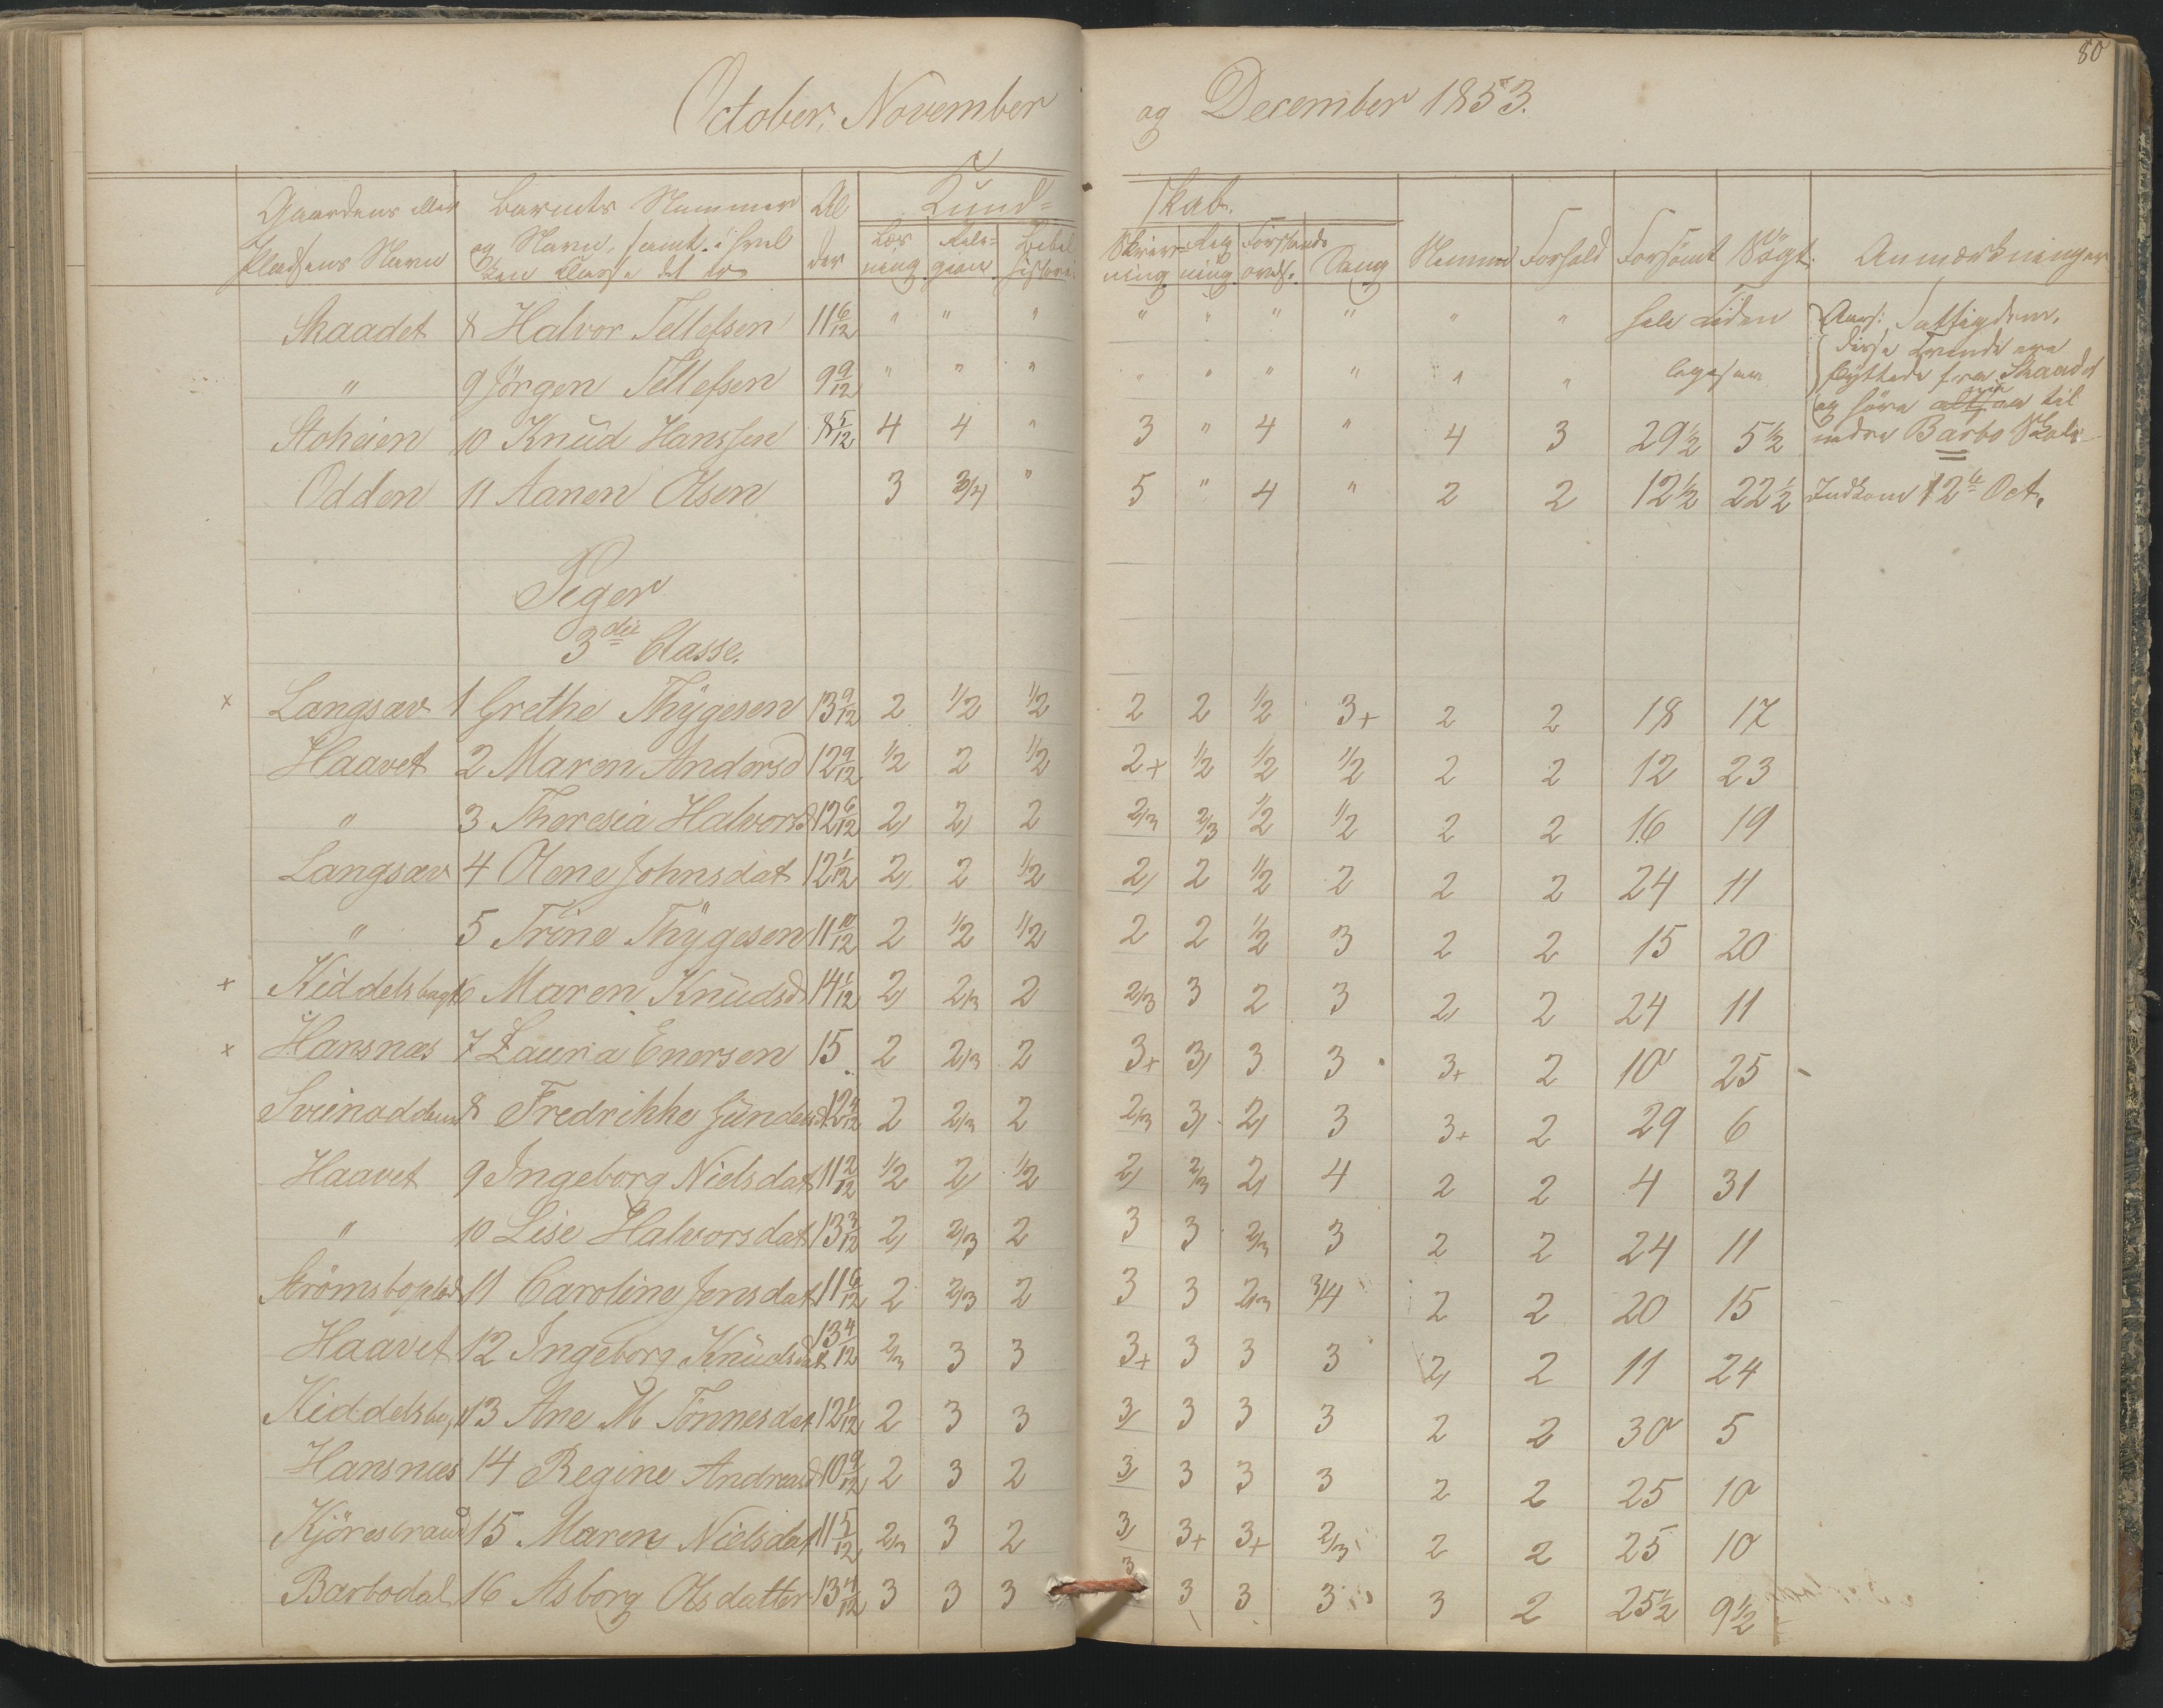 80
October, November og December 1853.
Gaardens eller Pladsens Navn | Barnets Nummer og Navn, samt i hvil ken Classe det er | Al der | Kund= skab.
Læs ning | Reli= gion | Bibel historie | Skriv= ning | Reg ning | Forstands øvels. | Sang | Nemme | Forhold | Forsømt | Søgt. | Anmærkninger
Skaadet 8 Halvor Tellefsen 11 6/12 " " " " " " " " " hele Tiden Aars: Fattigdom,
" 9 Jörgen Tellefsen 9 9/12 " " " " " " " " " ligesaa { disse Trende ere flyttede fra Skaadet
Stoheien 10 Knud Hanssen 8 5/12 4 4 " 3 " 4 " 4 3 29½ 5½ og høre nu til nedre Barbo Skole
Odden 11 Aanen Olsen 3 3/4 " 5 " 4 " 2 2 12½ 22½ Indkom 12te Oct.
Piger
3die Classe.
x Langsæv 1 Grethe Thÿgesen 13 9/12 2 1/2 1/2 2 2 1/2 3+ 2 2 18 17
Haavet 2 Maren Andersd 12 9/12 1/2 2 1/2 2+ 1/2 1/2 1/2 2 2 12 23
" 3 Theresia Halvorsd 12 6/12 2 2 2 2/3 2/3 1/2 1/2 2 2 16 19
Langsæv 4 Olene Johnsdat 12 1/12 2 2 1/2 2 2 1/2 2 2 2 24 11
" 5 Trine Thÿgesen 11 10/12 2 1/2 1/2 2 2 1/2 3 2 2 15 20
x Kiddelsbugt 6 Maren Knudsd 14 1/12 2 2/3 2 2/3 3 2 3 2 2 24 11
x Hansnæs 7 Laura Enersen 15 2 2/3 2 3+ 3 3 3 3+ 2 10 25
Svinodden 8 Fredrikke Gundersd 12 4/12 2 2/3 2 2/3 3 2 3 3+ 2 29 6
Haavet 9 Ingeborg Nielsdat 11 2/12 1/2 2 1/2 2 2/3 2 4 2 2 4 31
" 10 Lise Halvorsdat 13 3/12 2 2/3 2 3 3 2/3 3 2 2 24 11
Strömsbo 11 Caroline Jensdat 11 6/12 2 2/3 2 3 3 2/3 3/4 2 2 20 15
Haavet 12 Ingeborg Knudsdat 13 4/12 2/3 3 3 3+ 3 3 3 2 2 11 24
Kiddelsbugt 13 Ane M Tönnesdat 12 1/12 2 3 3 3 3 3 3 2 2 30 5
Hansnæs 14 Regine Andreasd 10 9/12 2 3 2 3 3 3 3 2 2 25 10
Kjörestrand 15 Maren Nielsdat 11 5/12 2/3 3 2 3 3+ 3+ 2/3 2 2 25 10
Barbodal 16 Asborg Olsdatter 13 4/12 3 3 3 3 3 3 3 3 2 25½ 9½